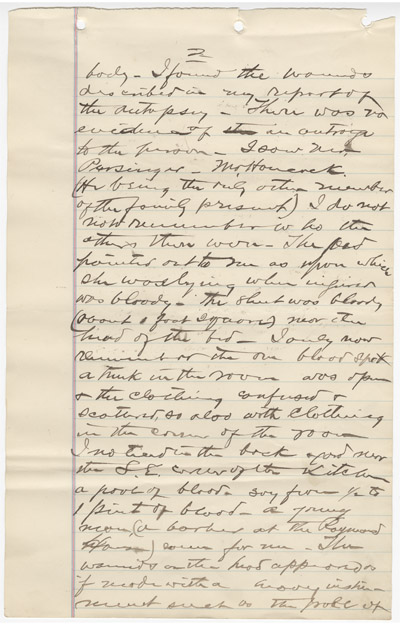 2
body - I found the wounds
described in my report of
the autopsy - There was no
evidence of an outrage
to the person - I saw Mr.
Persinger - Mr Hancock.
(He being the only other member
of the family present) I do not
now remember who the
others there were - The bed
pointed out to me as upon which
she was lying when injured
was bloody - the sheet was bloody
(about 1 foot square) near the
head of the bed - I only now
remember the one blood spot
a trunk in the room was open
& the clothing confused &
scattered, so also with clothing
in the corner of the room
I noticed in the back yard near
the S.E. corner of the Kitchen
a pool of blood - say from ½ to
1 pint of blood - a young
man (a boarder at the Raymond
House) came for me - The
wounds on the head appeared as
if made with a heavy instru-
ment such as the pole of